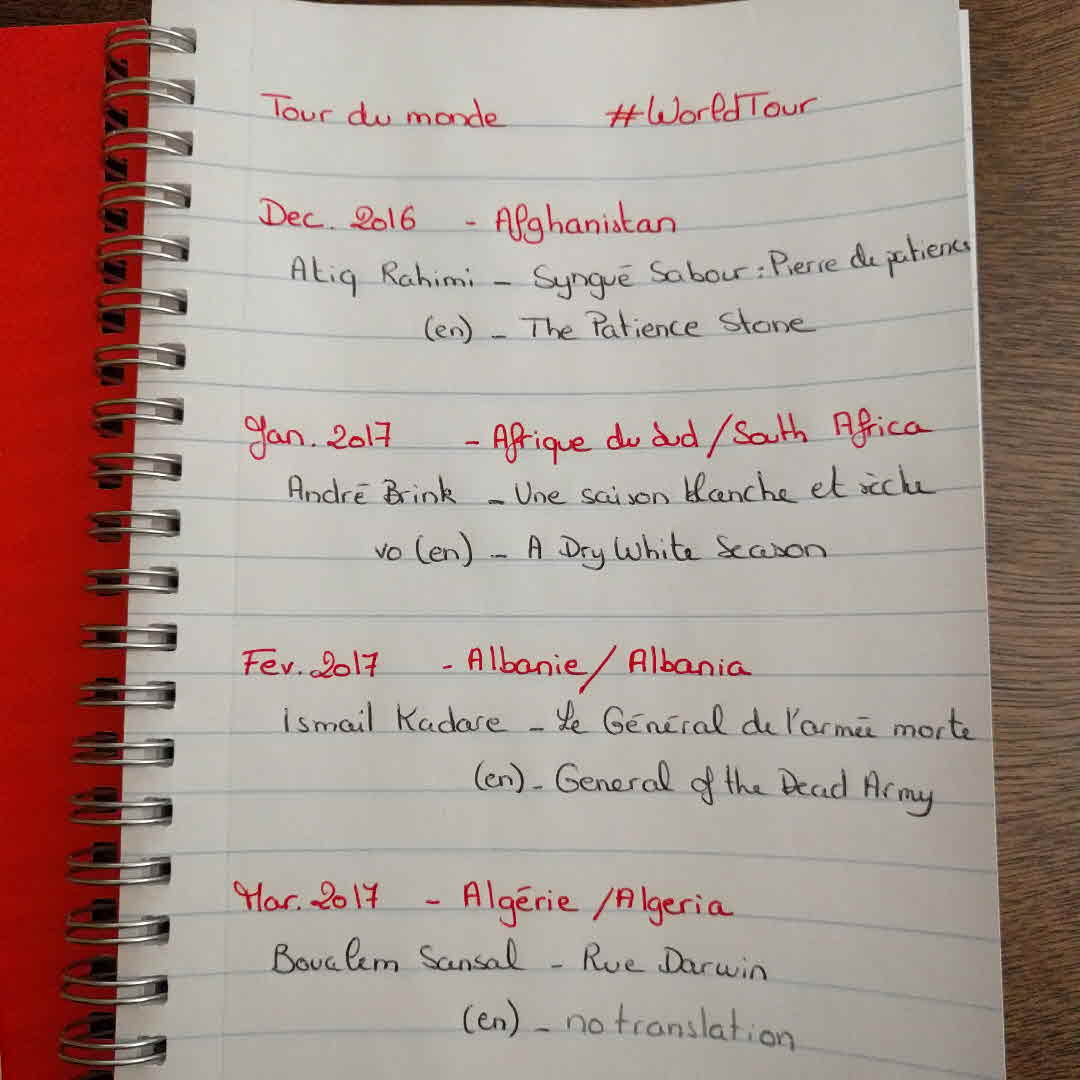 Tour du monde #WorldTour
Dec. 2016 - Afghanistan
Atiq Rahimi - Syngué Sabour : Pierre de patience
(en) - The Patience Stone
Jan. 2017 - Afrique du sud / South Africa
André Brink - Une saison blanche et sèche
vo (en) - A Dry White Season
Fev. 2017 - Albanie / Albania
ismail Kadare - Le Général de l'armée morte
(en) - General of the Dead Army
Mar. 2017 - Algérie / Algeria
Boualem Sansal - Rue Darwin
(en) - no translation